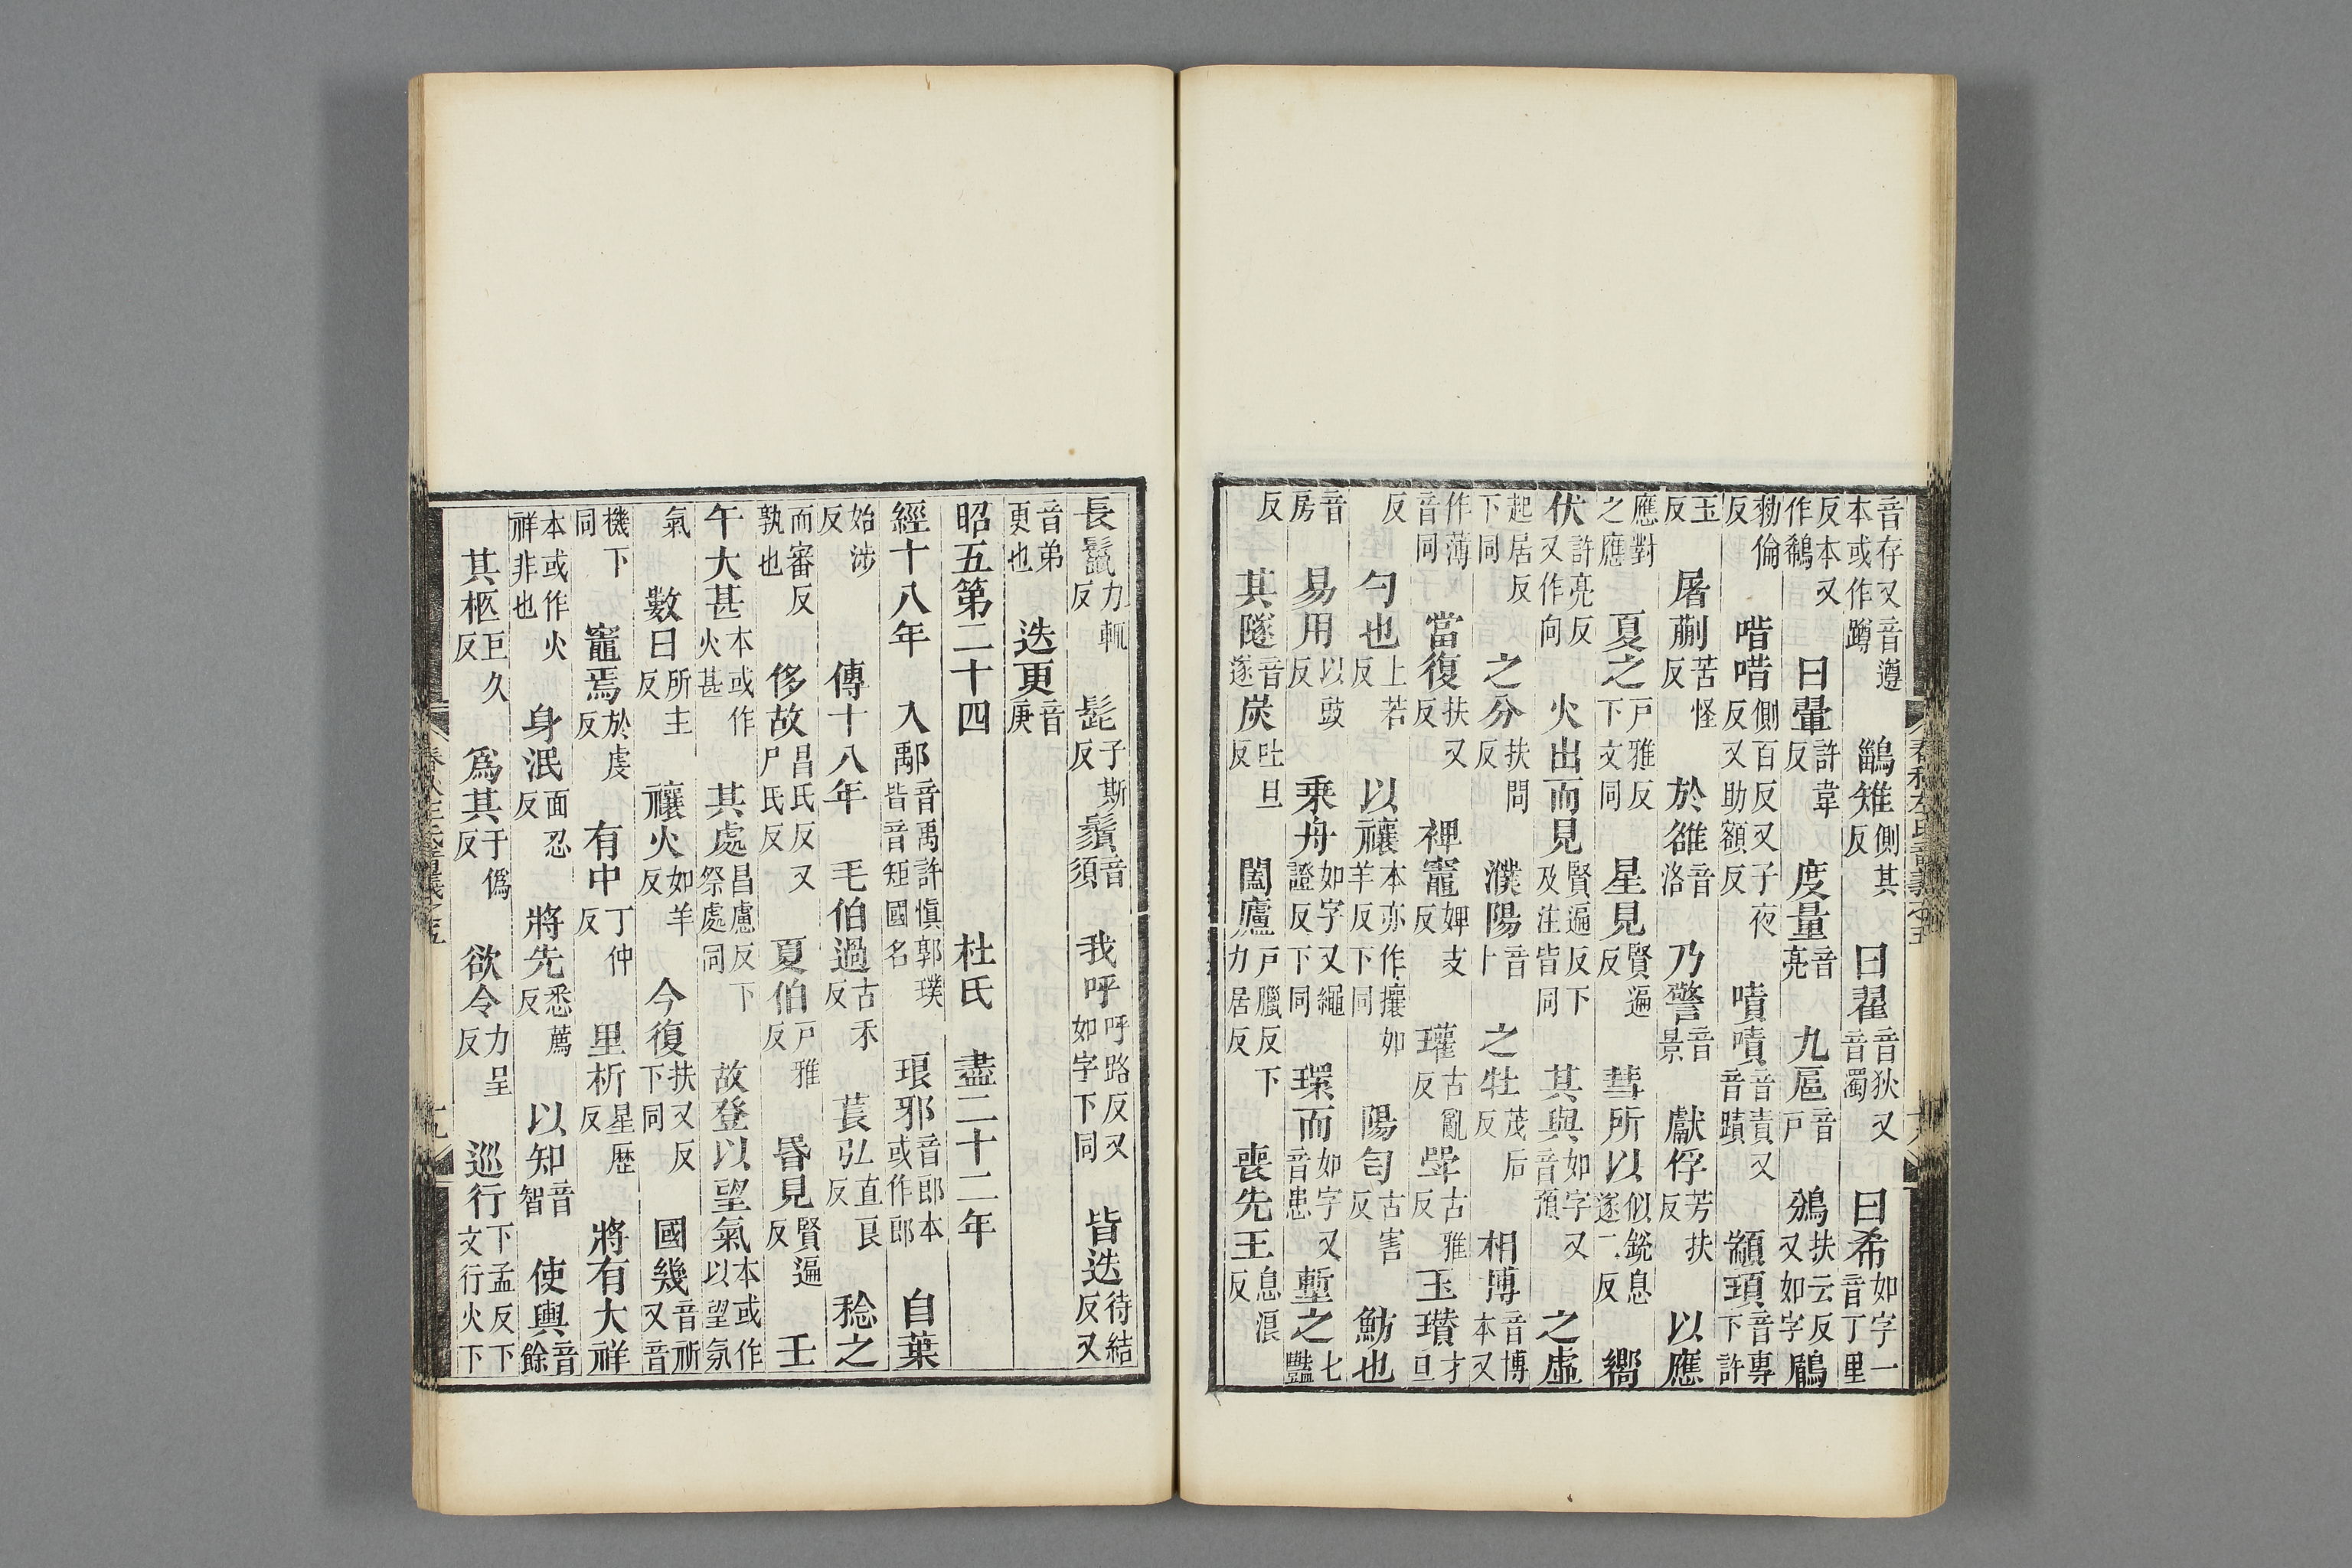 音存又音遵本或作蹲 鶅雉側其反 曰翟音狄又音濁 曰希如字一音丁里
反本又作鵗 曰翬許韋反 度量音亮 九扈音戶 鳻扶云反又如字 鶞
勑倫反 唶唶側百反又子夜反又助額反 嘖嘖音責又音蹟 顓頊音專下許
玉反 屠蒯苦怪反 於雒音洛 乃警音景 獻俘芳扶反 以應
應對之應 夏之戶雅反下文同 星見賢遍反 彗所以似銳息遂二反 嚮
許亮反又作向 火出而見賢遍反下及注皆同 其與如字又音預 之虛
起居反下同 之分扶問反 濮陽音卜 之牡茂后反 相博音博本又
作薄音同 當復扶又反 裨竈婢支反 瓘古亂反 斝古雅反 玉瓚才旦
反 勺也上若反 以禳本亦作攘如羊反下同 陽匄古害反 魴也
音房 易用以豉反 乘舟如字又繩證反下同 環而如字又音患 塹之七豔
反 其隧音遂 炭吐旦反 闔廬戶臘反下力居反 喪先王息浪反
長鬣力輒反 髭子斯反 鬚音須 我呼呼路反又如字下同 皆迭待結反又
音弟更也 迭更音庚
昭五第二十四 杜氏 盡二十二年
經十八年 入鄅音禹許慎郭璞皆音矩國名 琅邪音郎本或作郎 自葉
始涉反 傳十八年 毛伯過古禾反 萇弘直良反 稔之
而審反孰也 侈故昌氏反又尸氏反 夏伯戶雅反 昏見賢遍反 壬
午大甚本或作火甚 其處昌慮反下祭處同 故登以望氣本或作以望氛
氣 數曰所主反 禳火如羊反 今復扶又反下同 國幾音祈又音
機下同 竈焉於虔反 有中丁仲反 里析星歷反 將有大祥
本或作火祥非也 身泯面忍反 將先悉薦反 以知音智 使輿音餘
其柩巨久反 爲其于僞反 欲令力呈反 巡行下孟反下文行火下